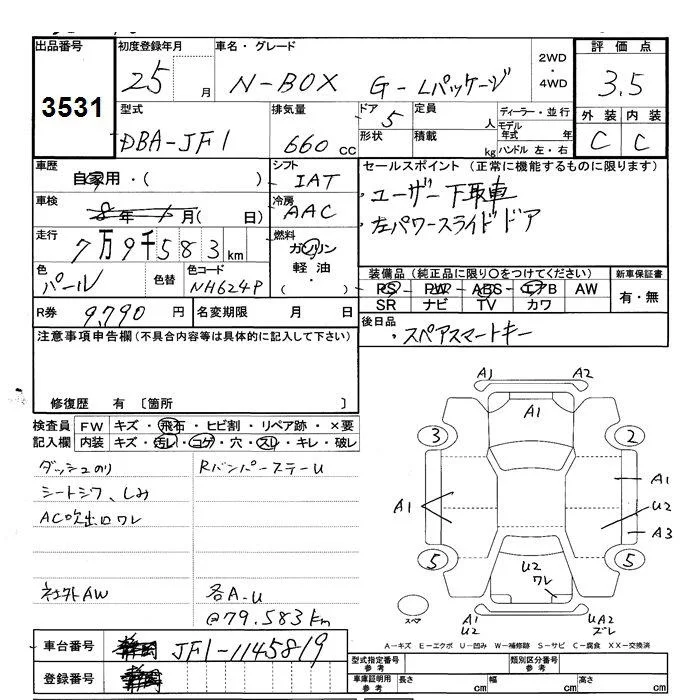 出品番号 初度登録年月 車名・グレード 評価点
3531 25 月 N-BOX G-Lパッケージ 2WD・4WD 3.5
型式 排気量 ドア 5 定員 人 ディーラー・並行 外装 内装
DBA-JF1 660 cc 形状 積載 kg モデル年式 年 ハンドル 左・右 C C
車歴 自家用・( ) シフト IAT セールスポイント (正常に機能するものに限ります)
車検 8年 1月( 日) 冷房 AAC ・ユーザー下取車
・左パワースライドドア
走行 7万9千583km 燃料 ガソリン 軽油・( )
色 パール 色替 色コード NH624P
装備品 (純正品に限り〇をつけてください) 新車保証書
PS PW ABS エアB AW 有・無
SR ナビ TV カワ
R券 9,790 円 名変期限 月 日
後日品 ・スペアスマートキー
注意事項申告欄 (不具合内容等は具体的に記入して下さい)
修復歴 有 〔箇所 〕
検査員 FW キズ・飛石・ヒビ割・リペア跡・×要
記入欄 内装 キズ・汚れ・コゲ・穴・スリ・キレ・破レ
ダッシュのり Rバンパーステーu
シートシワ、しみ
AC吹出口ワレ
社外AW 各A-u
@79.583km
A1 A2
A1
3 2
A1
A1 U2
A3
5 5
U2
ワレ
スペア
A1 U2 UA2 ズレ
A－キズ E－エクボ U－凹み W－補修跡 S－サビ C－腐食 XX－交換済
車台番号 JF1-1145819
登録番号
型式指定番号 参考 類別区分番号 参考
車庫証明用 参考 長さ cm 幅 cm 高さ cm